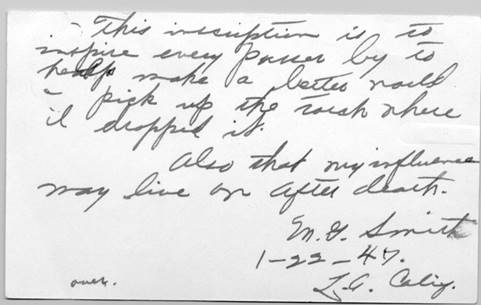 - This inscription is to
inspire every Passer by to
help make a better world
- pick up the torch where
I dropped it.
Also that my influence
may live on after death.
M. G. Smith
1-22-47.
L.A. Calif.
over.